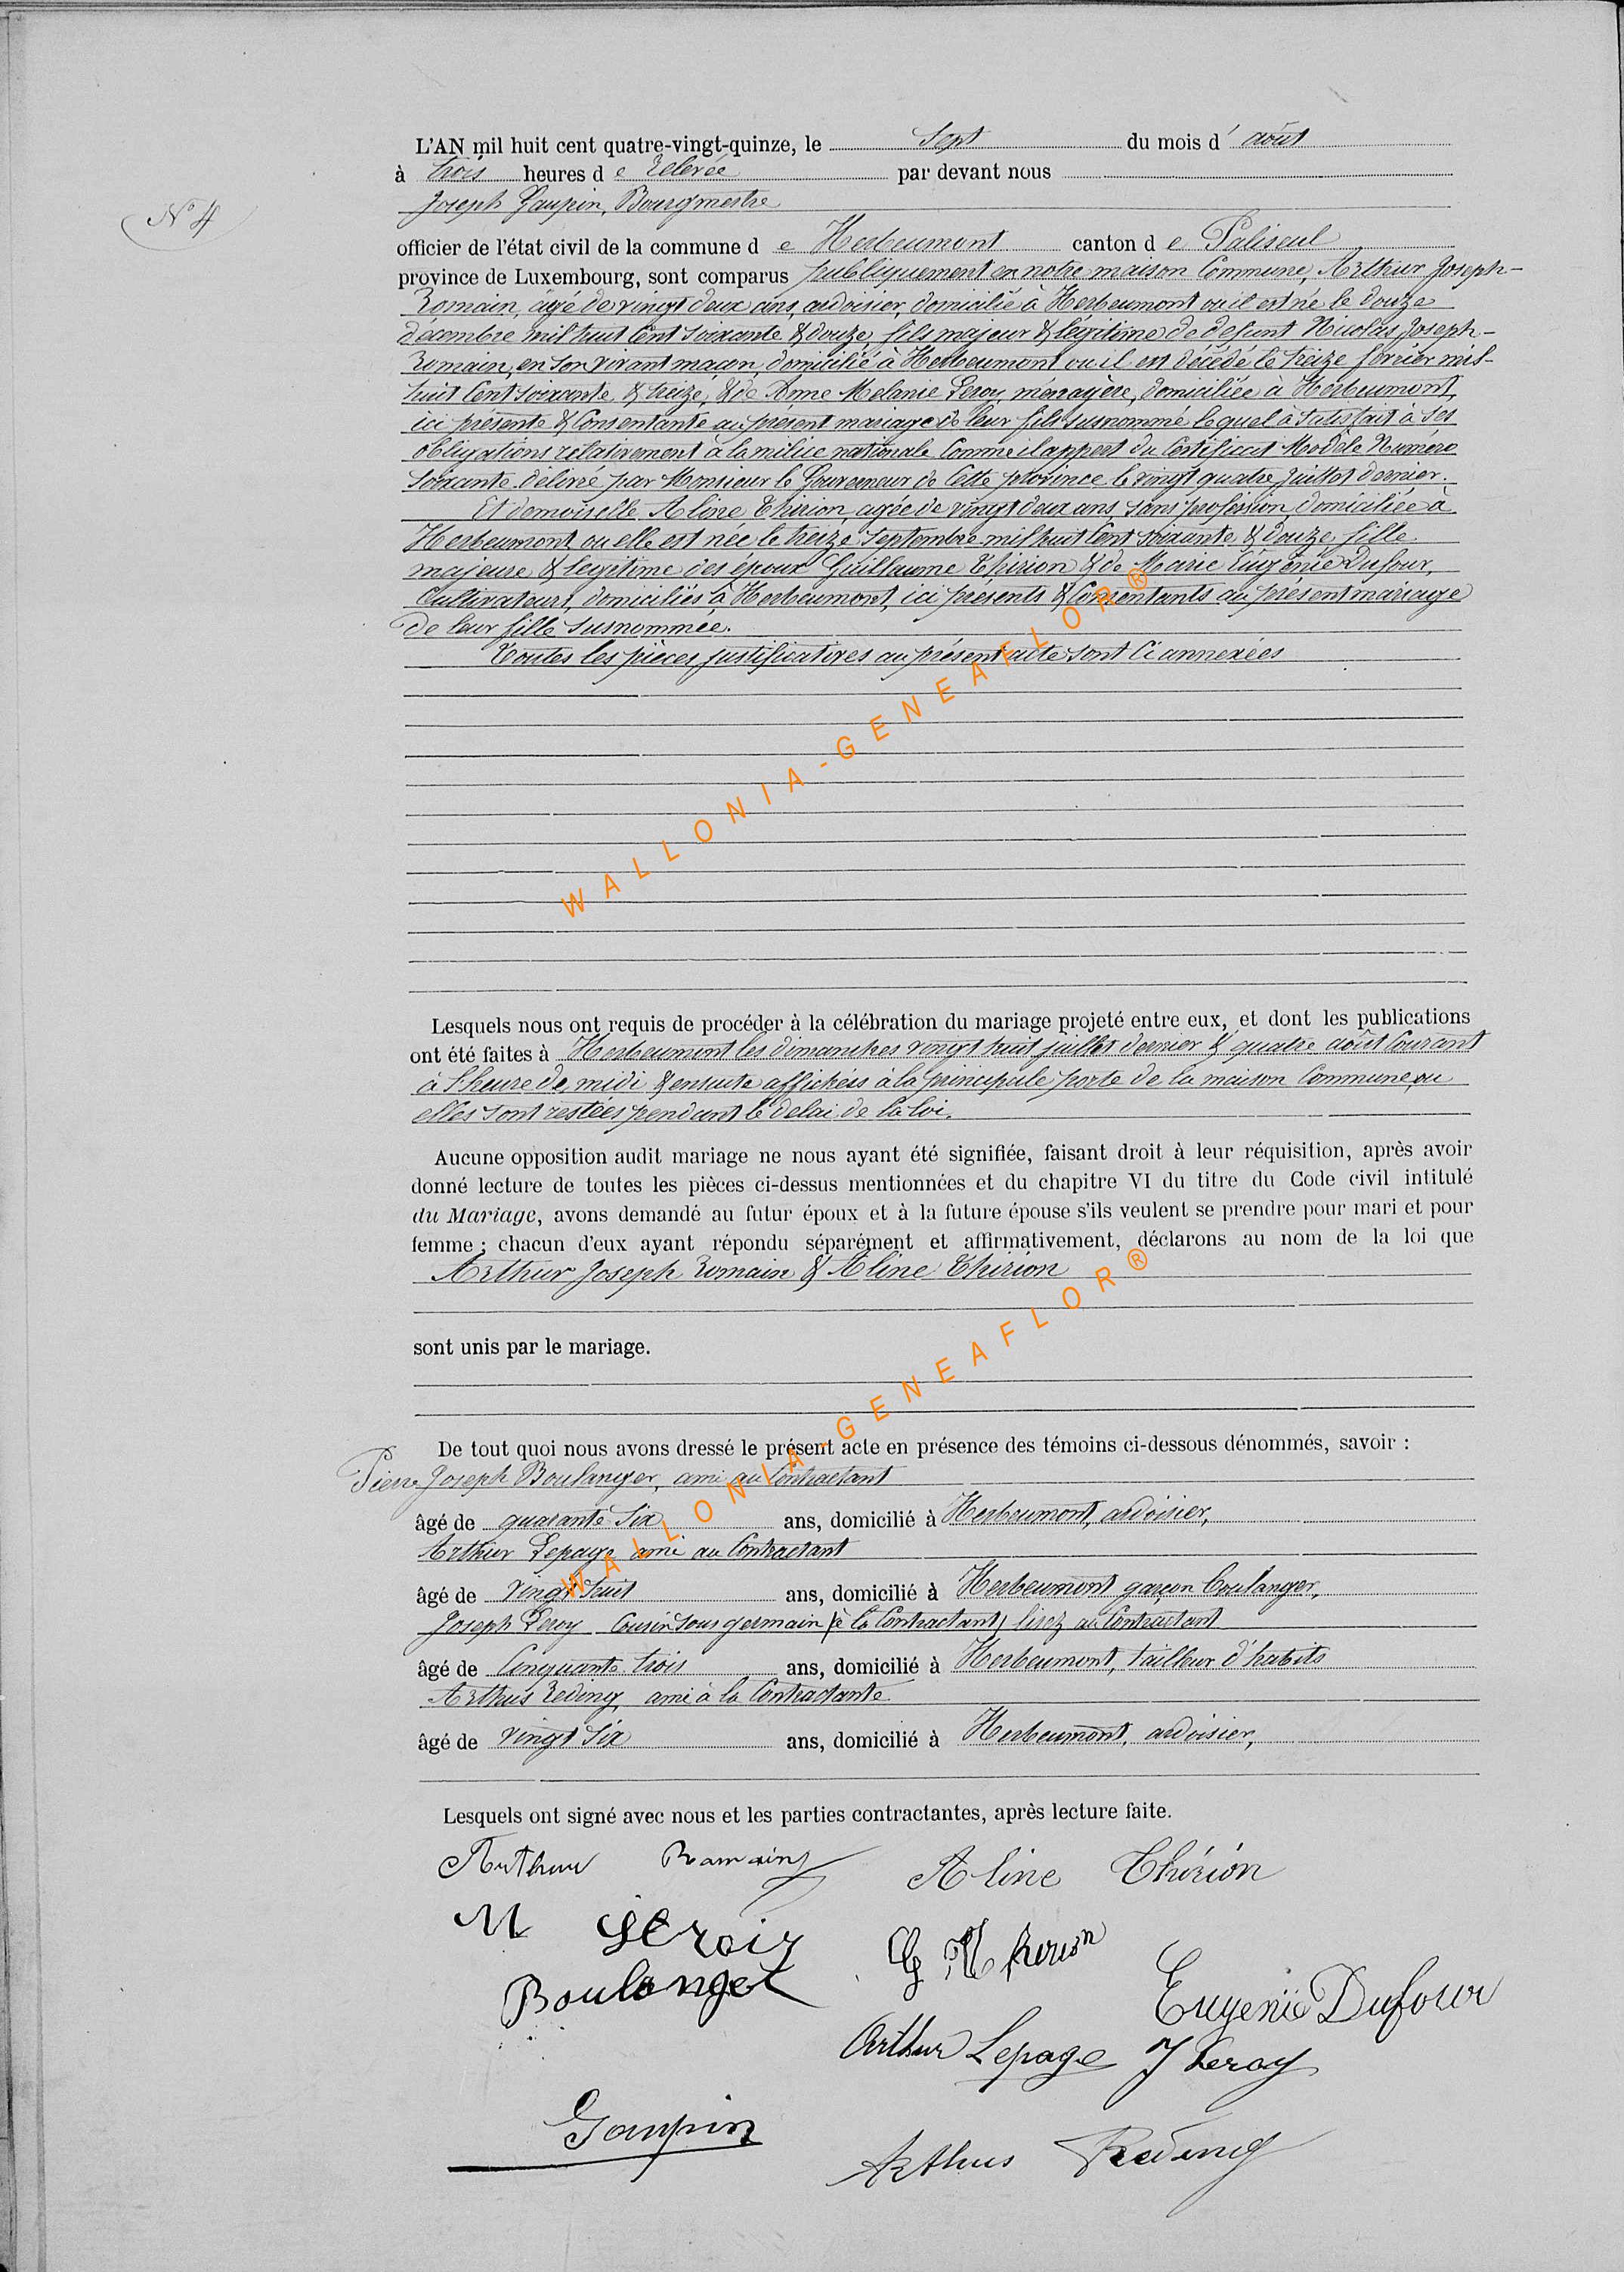 L'AN mil huit cent quatre-vingt-quinze, le Sept du mois d' août
à trois heures de Relevée par devant nous
N° 4
Joseph Gaupin, Bourgmestre
officier de l'état civil de la commune de Herbeumont canton de Paliseul
province de Luxembourg, sont comparus publiquement en notre maison Commune, Arthur Joseph-
Romain, âgé de vingt deux ans, ardoisier, domicilié à Herbeumont où il est né le douze
décembre mil huit Cent soixante & douze, fils majeur & légitime de défunt Nicolas Joseph-
Romain, en son vivant maçon, domicilié à Herbeumont où il est décédé le treize février mil-
huit Cent soixante & treize, & de Anne Melanie Leroy, ménagère, domiciliée à Herbeumont,
ici présente & Consentante au présent mariage de leur fils susnommé lequel à satisfait à ses
obligations relativement à la milice nationale Comme il appert du Certificat Modèle Numéro
soixante délivré par Monsieur le Gouverneur de Cette province, le vingt quatre juillet dernier.
Et demoiselle Aline Thirion, agée de vingt deux ans, sans profession domiciliée à
Herbeumont, ou elle est née le treize septembre mil huit Cent soixante & douze, fille
majeure & légitime des époux Guillaume Thirion & de Marie Eugénie Dufour,
Cultivateurs, domiciliés à Herbeumont, ici présents & Consentants au présent mariage
de leur fille susnommée.
Toutes les pièces justificatives au présent acte sont Ci annexées
WALLONIA-GENEAFLOR®
Lesquels nous ont requis de procéder à la célébration du mariage projeté entre eux, et dont les publications
ont été faites à Herbeumont les dimanches vingt huit juillet dernier & quatre août Courant
à l'heure de midi & ensuite affichées à la principale porte de la maison Commune, ou
elles sont restées pendant le delai de la loi.
Aucune opposition audit mariage ne nous ayant été signifiée, faisant droit à leur réquisition, après avoir
donné lecture de toutes les pièces ci-dessus mentionnées et du chapitre VI du titre du Code civil intitulé
du Mariage, avons demandé au futur époux et à la future épouse s'ils veulent se prendre pour mari et pour
femme ; chacun d'eux ayant répondu séparément et affirmativement, déclarons au nom de la loi que
Arthur Joseph Romain & Aline Thirion
sont unis par le mariage.
WALLONIA-GENEAFLOR®
De tout quoi nous avons dressé le présent acte en présence des témoins ci-dessous dénommés, savoir :
Pierre Joseph Boulanger, ami au Contractant
âgé de quarante six ans, domicilié à Herbeumont, ardoisier,
Arthur Lepage ami au Contractant
âgé de vingt huit ans, domicilié à Herbeumont garçon boulanger,
Joseph Leroy Cousin sous germain (à la Contractant) lisez au Contractant
âgé de Cinquante trois ans, domicilié à Herbeumont, tailleur d'habits
Arthus Reding, ami à la Contractante
âgé de vingt six ans, domicilié à Herbeumont, ardoisier,
Lesquels ont signé avec nous et les parties contractantes, après lecture faite.
Arthur Romain Aline Thirion
M Leroy G Thirion
Boulanger Eugenie Dufour
Arthur Lepage J Leroy
Gaupin
Arthus Reding